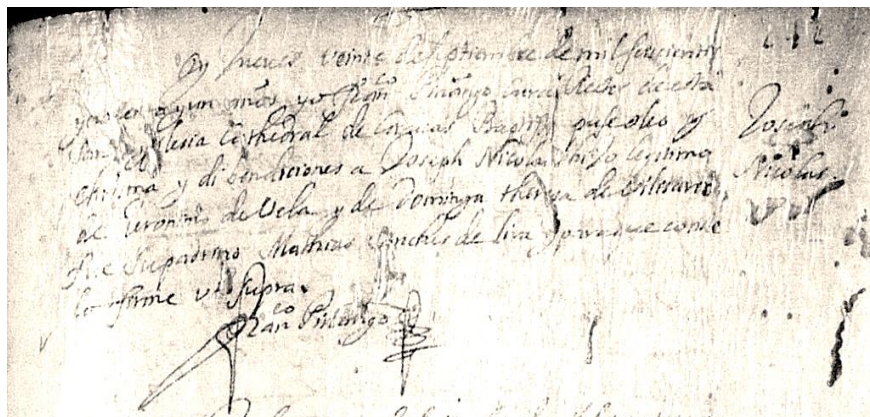 En Jueves veinte de septiembre de mil seiscientos
y ochenta y un años yo Franco Piñango Cura Rector de esta
Santa Iglesia Cathedral de Caracas Baptisé puse oleo y
Chrisma y di bendiciones a Joseph Nicolas hijo legitimo
de Geronimo de Vela y de Dominga theresa de
fue su padrino Mathias Sanches de lira y para que conste
lo firme ut supra.
Franco Piñango
Joseph
Nicolas